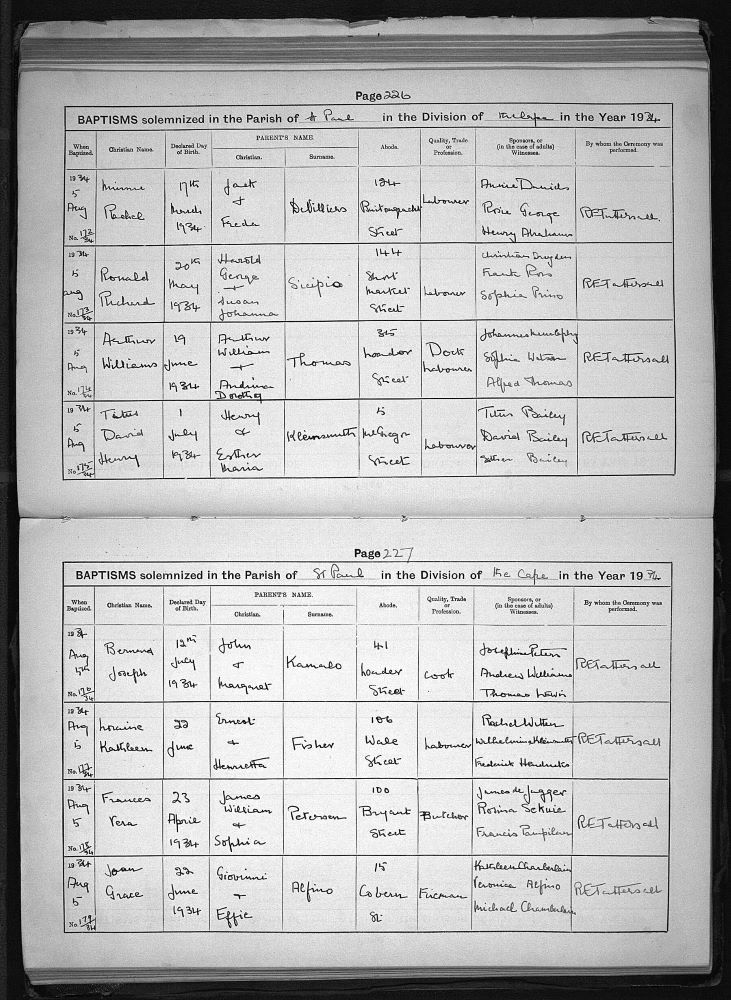 Page 226
BAPTISMS solemnized in the Parish of St Paul in the Division of the Cape in the Year 1934.
When Baptized. Christian Name. Declared Day of Birth. PARENT'S NAME. Christian. Surname. Abode. Quality, Trade or Profession. Sponsors, or (in the case of adults) Witnesses. By whom the Ceremony was performed.
1934 5 Aug No. 172/34
Minnie Rachel
17th March 1934
Jack + Freda
DeVilliers
124 Buitengracht Street
Labourer
Annie Daniels
Rosie George
Henry Abrahams
RETattersall.
1934 5 Aug No. 173/34
Ronald Richard
20th May 1934
Harold George + Susan Johanna
Scipio
144 Short market Street
Labourer
Christian Dryden
Frank Ross
Sophia Prins
RETattersall
1934 5 Aug No. 174/34
Arthur Williams
19 June 1934
Arthur William + Andrina Dorothy
Thomas
315 Loader Street
Dock Labourer
Sophia Watson
Alfred Thomas
RETattersall
1934 5 Aug No. 175/34
Titus David Henry
1 July 1934
Henry & Esther Maria
Kleinsmith
5 McGregor Street
Labourer
Titus Bailey
David Bailey
Esther Bailey
RETattersall
Page 227
BAPTISMS solemnized in the Parish of St Paul in the Division of the Cape in the Year 1934.
When Baptized. Christian Name. Declared Day of Birth. PARENT'S NAME. Christian. Surname. Abode. Quality, Trade or Profession. Sponsors, or (in the case of adults) Witnesses. By whom the Ceremony was performed.
1934 Aug 5th No. 176/34
Bernard Joseph
12th July 1934
John + Margaret
Kamalo
41 Loader Street
Cook
Josephine Peters
Andrew Williams
Thomas Lewis
RETattersall
1934 Aug 5 No. 177/34
Loraine Kathleen
22 June
Ernest + Henrietta
Fisher
106 Wale Street
Labourer
Rachel Witten
Wilhelmina Kleinsmith
Frederick Hendricks
RETattersall
1934 Aug 5 No. 178/34
Frances Vera
23 April 1934
James William + Sophia
Petersen
100 Bryant Street
Butcher
James de Jagger
Rosina Sekuie
Francis Pampilan
RETattersall
1934 Aug 5 No. 179/34
Joan Grace
22 June 1934
Giovinni + Effie
Alfino
15 Cobern St.
Fireman
Kathleen Chamberlain
Veronica Alfino
Michael Chamberlain
RETattersall